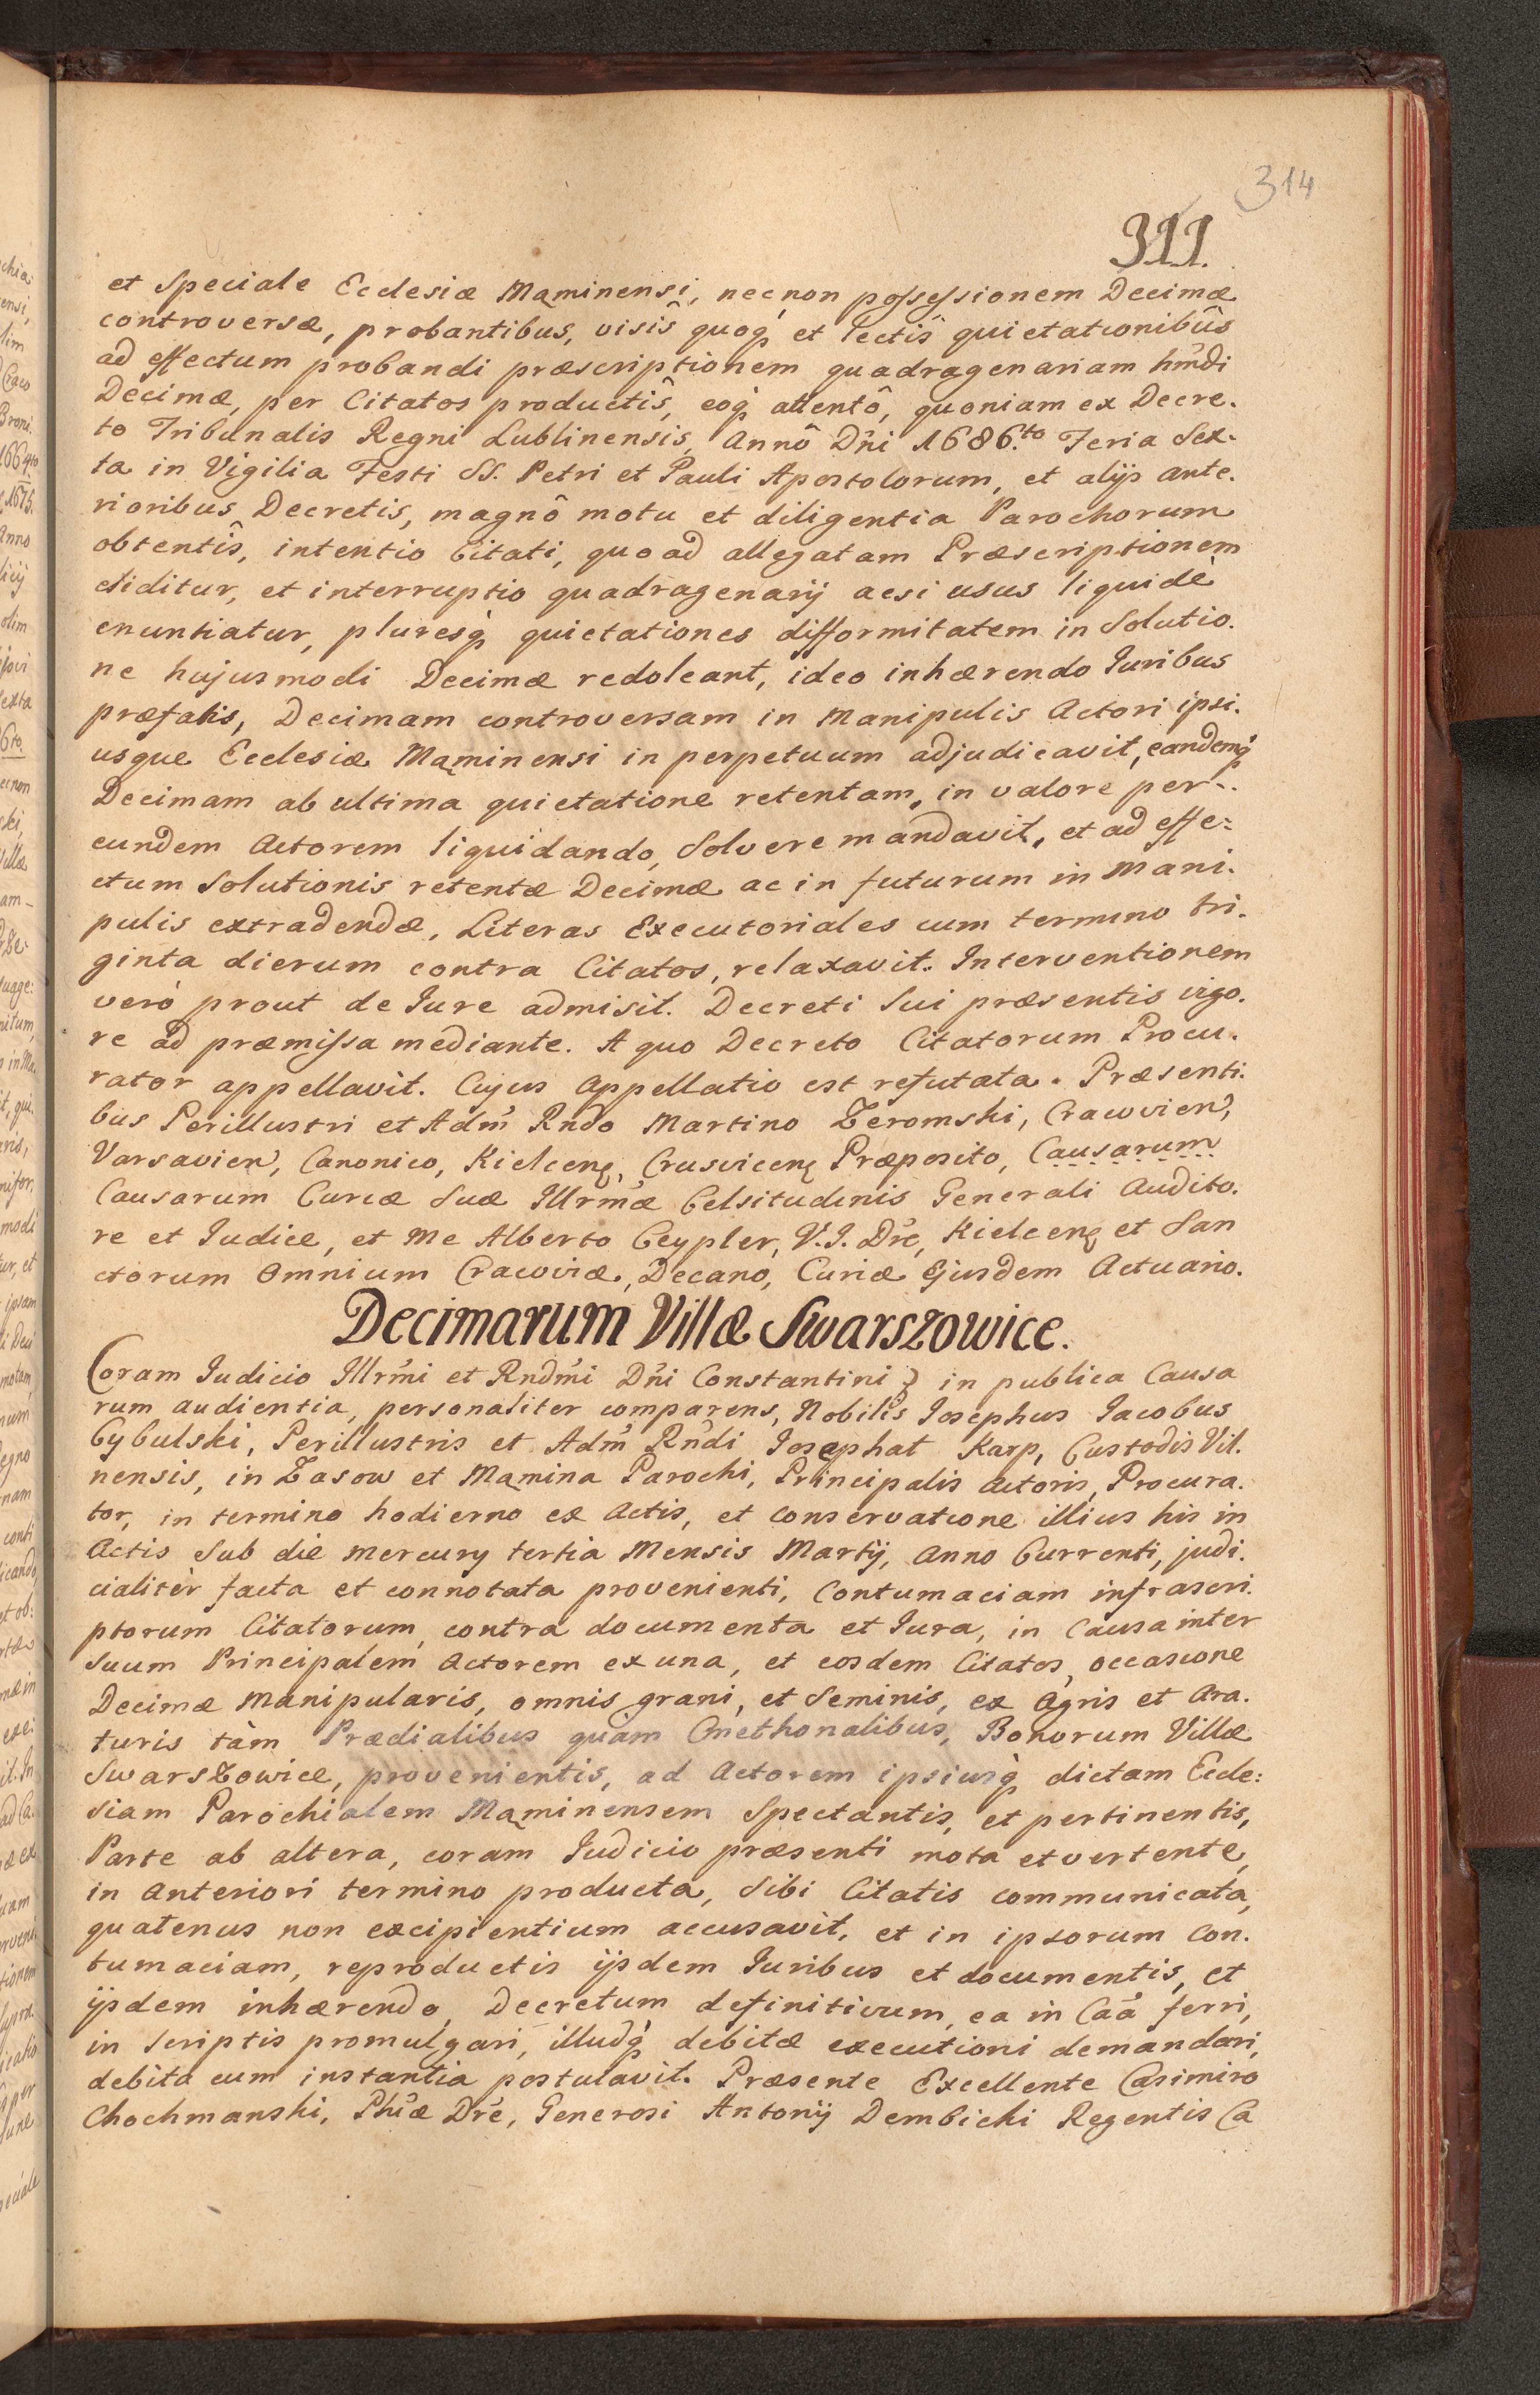 314
311.
et Speciale Ecclesiæ Mąminensi, necnon possessionem Decimæ
controversæ, probantibus, visîs quoq́ et lectîs quietationibûs
ad effectum probandi præscriptionem quadragenariam hm̃di
Decimæ, per Citatos productîs, eoq́ attentô, quoniam ex Decre.
to Tribunalis Regni Lublinensis, Annô Dńi 1686.to Feria Sex.
ta in Vigilia Festi SS. Petri et Pauli Apostolorum, et alijs ante.
rioribus Decretis, magnô motu et diligentia Parochorum
obtentîs, intentio Citati, quoad allegatam Præscriptionem
eliditur, et interruptio quadragenarij acsi usus liquidè
enuntiatur, pluresq́ quietationes difformitatem in Solutio.
ne hujusmodi Decimæ redoleant, ideo inhærendo Iuribus
præfatis, Decimam controversam in Manipulis Actori ipsi.
usque Ecclesiæ Mąminensi in perpetuum adjudicavit, eandemq́
Decimam ab ultima quietatione retentam, in valore per..
eundem Actorem liquidando, Solvere mandavit, et ad effe:
ctum Solutionis retentæ Decimæ ac in futurum in Mani.
pulis extradendæ, Literas Executoriales cum termino tri.
ginta dierum contra Citatos, relaxavit. Interventionem
verò prout de Iure admisit. Decreti Sui præsentis vigo.
re ad præmissa mediante. A quo Decreto Citatorum Procu.
rator appellavit. Cujus Appellatio est refutata. Præsenti.
bus Perillustri et Adm̃ Rńdo Martino Zeromski, Cracovień,
Varsavień, Canonico, Kielceną, Crusviceną Præposito, Causarum
Causarum Curiæ Suæ Illrm̃æ Celsitudinis Generali Audito.
re et Iudice, et Me Alberto Ceypler, V.I. Dŕe, Kielceną et San
ctorum Omnium Cracoviæ, Decano, Curiæ Ejusdem Actuario.
Decimarum Villæ Swarszowice.
Coram Iudicio Illrm̃i et Rndm̃i Dńi Constantini in publica Causa
rum audientia, personaliter comparens, Nobilis Iosephus Iacobus
Cybulski, Perillustris et Adm̃ Rńdi Josephat Karp, Custodis Vil.
nensis, in Zasow et Mąmina Parochi, Principalis Actoris, Procura.
tor, in termino hodierno ex Actis, et conservatione illius his in
Actis Sub die Mercury tertia Mensis Martij, Anno Currenti, judi.
cialitèr facta et connotata provenienti, Contumaciam infrascri.
ptorum Citatorum, contra documenta et Iura, in Causa inter
Suum Principalem Actorem ex una, et eosdem Citatos, occasione
Decimæ Manipularis, omnis grani, et Seminis, ex Agris et Ara.
turis tàm Prædialibus quam Cmethonalibus, Bonorum Villæ
Swarszowice, provenientis, ad Actorem ipsiusq́ dictam Eccle:
siam Parochialem Mąminensem Spectantis, et pertinentis,
Parte ab altera, coram Iudicio præsenti mota et vertente,
in Anteriori termino producta, Sibi Citatis communicata,
quatenus non excipientium accusavit, et in ipsorum Con.
tumaciam, reproductis ijsdem Iuribus et documentis, et
ijsdem inhærendo, Decretum definitivum, ea in Cãa ferri,
in Scriptis promulgari, illudq́ debitæ executioni demandari,
debita cum instantia postulavit. Præsente Excellente Casimiro
Chochmanski, Phiæ Dŕe, Generosi Antonij Dembicki Regentis Ca